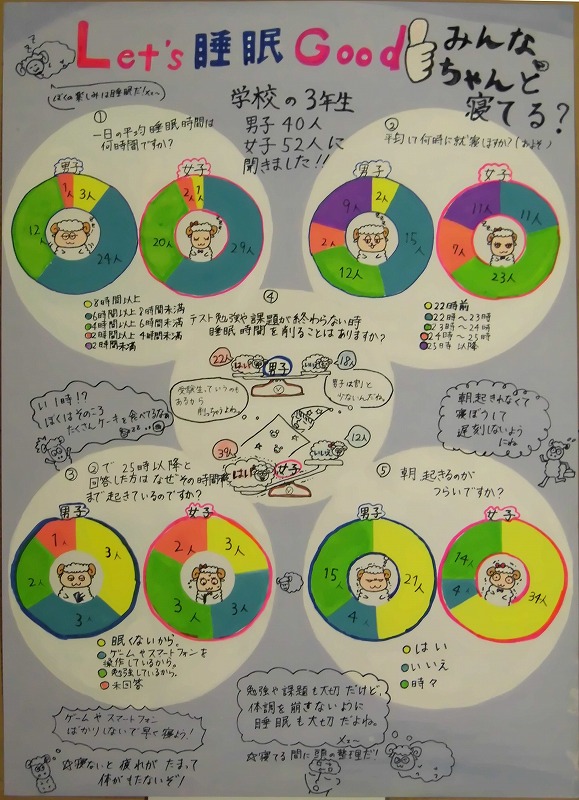 Let's 睡眠 Good
みんな
ちゃんと
寝てる?
ぼくの楽しみは睡眠だ!メェ〜
学校の3年生
男子40人
女子52人に
聞きました!!
①
一日の平均睡眠時間は
何時間ですか?
男子
1人
3人
12人
24人
女子
2人
1人
20人
29人
8時間以上
6時間以上8時間未満
4時間以上6時間未満
2時間以上4時間未満
2時間未満
②
平均して何時に就寝しますか?(およそ)
男子
2人
9人
15人
2人
12人
女子
11人
11人
7人
23人
22時前
22時〜23時
23時〜24時
24時〜25時
25時以降
④
テスト勉強や課題が終わらない時
睡眠時間を削ることはありますか?
22人
はい
男子
いいえ
18人
受験生っていうのも
あるから
削っちゃうよね。
男子は割と
少ないんだね。
39人
はい
女子
いいえ
12人
い、1時!?
ぼくはそのころ
たくさんケーキを食べてるなぁ
朝起きれなくて
寝ぼうして
遅刻しないよう
にね
③
②で25時以降と
回答した方はなぜその時間帯
まで起きているのですか?
男子
1人
3人
2人
3人
女子
2人
3人
3人
3人
眠くないから。
ゲームやスマートフォンを
操作しているから。
勉強しているから。
未回答
⑤
朝起きるのが
つらいですか?
男子
15人
21人
4人
女子
14人
4人
34人
はい
いいえ
時々
ゲームやスマートフォン
ばかりしないで早く寝よう!
☆寝ないと疲れがたまって
体がもたないぞ!
勉強や課題も大切だけど、
体調を崩さないように
睡眠も大切だよね。
メェ〜
☆寝てる間に頭の整理だ!